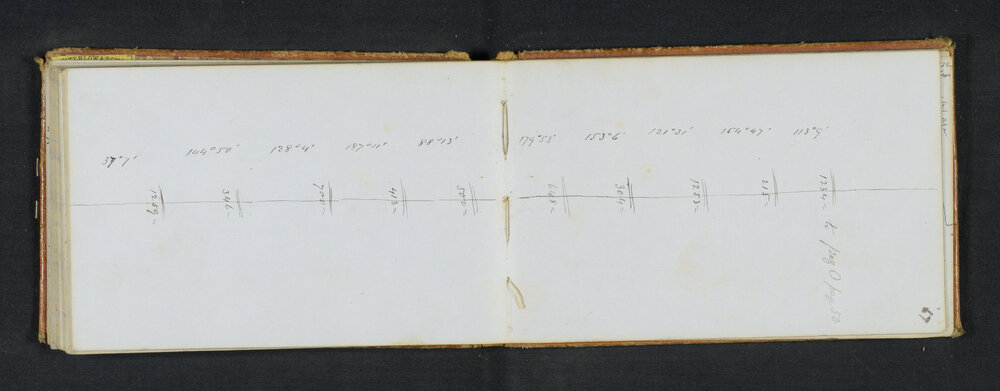 37°7' 144°50' 128°4' 187°11' 88°13' 179°53' 153°6' 121°31' 154°47' 113°9'
1259
346
720
413
500
645
304
1253
215
1234 to peg O page 50
67